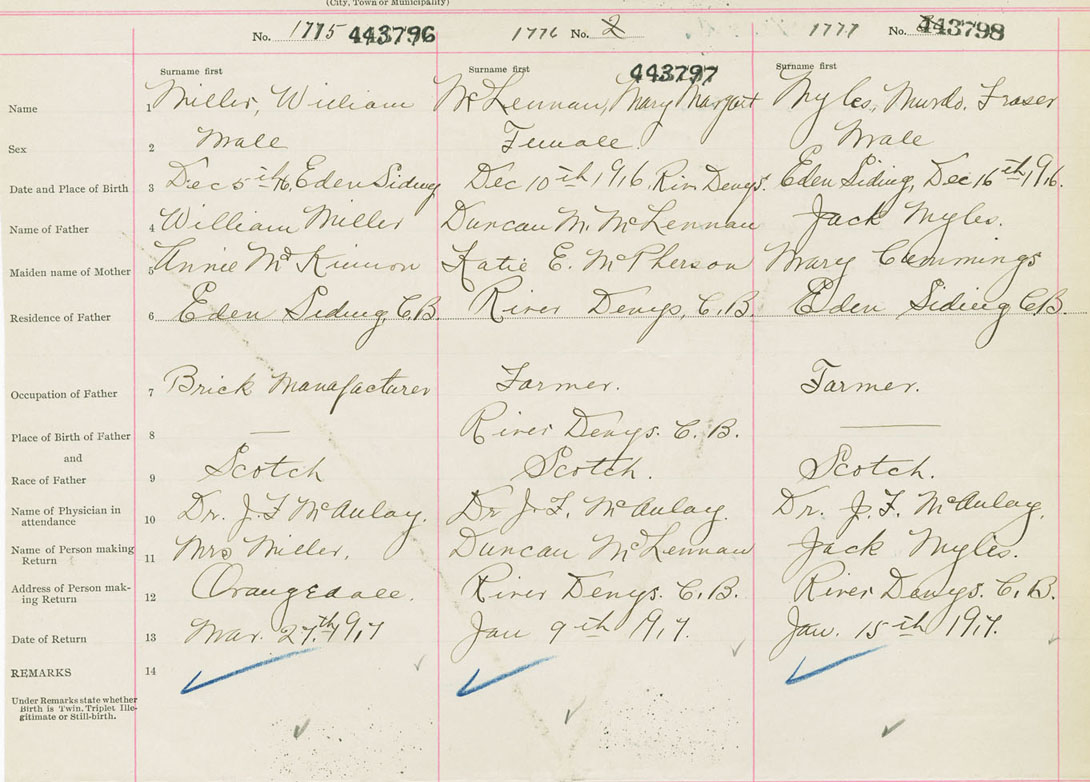 (City, Town or Municipality)
No. 1775 443796 1776 No. 2 1777 No. 443798
Surname first Surname first 443797 Surname first
Name 1 Miller, William McLennan, Mary Margart Myles, Murdo. Fraser
Sex 2 Male Female. Male
Date and Place of Birth 3 Dec 5th 16, Eden Siding Dec 10th, 1916, Riv. Denys. Eden Siding, Dec 16th, 1916.
Name of Father 4 William Miller Duncan M. McLennan Jack Myles.
Maiden name of Mother 5 Annie McKinnon Katie E. McPherson Mary Cummings
Residence of Father 6 Eden Siding, C.B. River Denys, C.B. Eden Siding C.B.
Occupation of Father 7 Brick Manafacturer Farmer. Farmer.
Place of Birth of Father 8 — River Denys. C.B. —
and
Race of Father 9 Scotch Scotch. Scotch.
Name of Physician in attendance 10 Dr. J.F McAulay. Dr J.F. McAulay. Dr. J.F. McAulay.
Name of Person making Return 11 Mrs Miller. Duncan McLennan Jack Myles.
Address of Person mak-
ing Return 12 Orangedale. River Denys. C.B. River Denys. C.B.
Date of Return 13 Mar. 27th, 1917 Jan 9th 1917. Jan. 15th 1917.
REMARKS 14
Under Remarks state whether
Birth is Twin, Triplet Ille-
gitimate or Still-birth.